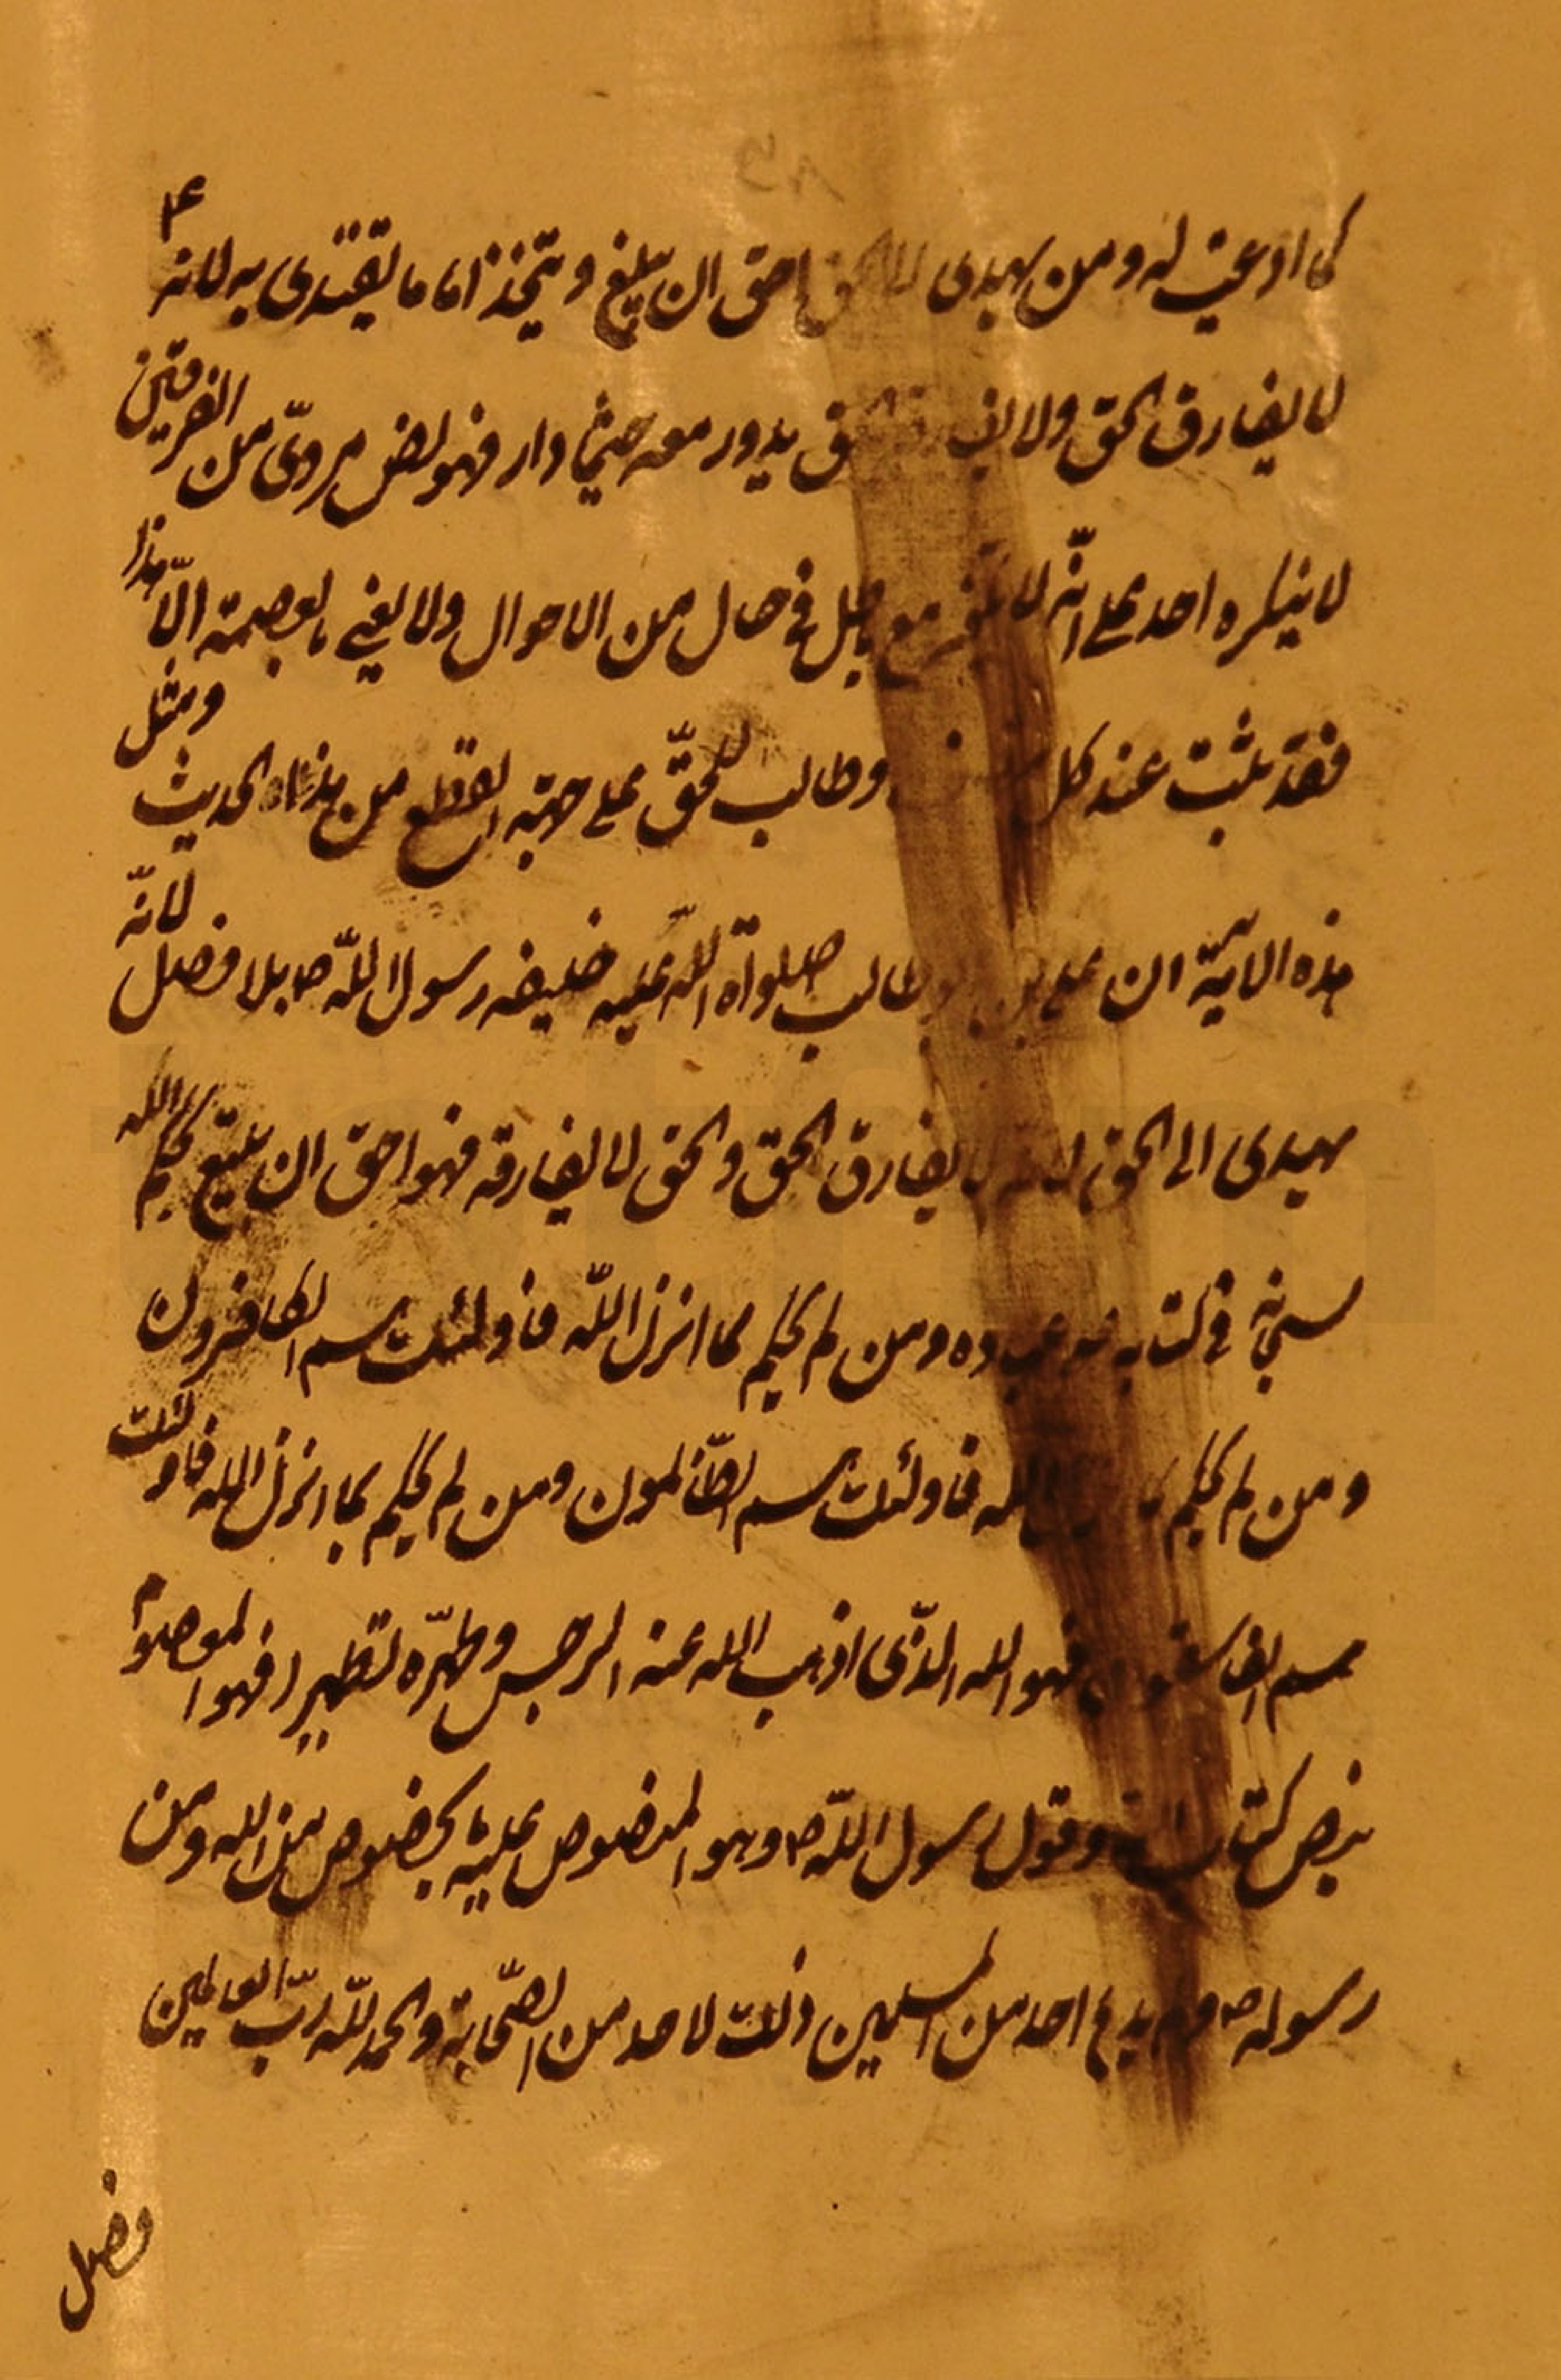 كما ادعيت له ومن يهدى الى الحق احق ان يتبع ويتخذ اماما يقتدى به لانه ع
لا يفارق الحق ولا الحق يدور معه حيثما دار فهو نص مروىّ من الفريقين
لا ينكره احد على انّه لا مع باطل فى حال من الاحوال ولا يعنى بعصمته الّا هذا
فقد ثبت عند كل وطالب للحقّ على جهة القطع من هذا الحديث ومثل
هذه الآية ان على بن ابى طالب صلواة اللّه عليه خليفه رسول اللّه ص بلا فصل لانّه
يهدى الى الحق لانه لا يفارق الحق والحق لا يفارقه فهو احق ان يتبع بحكم اللّه
سبحانه فى كتابه ومن لم يحكم بما انزل اللّه فاولئك هم الكافرون
ومن لم يحكم بما اللّه فاولئك هم الظّالمون ومن لم يحكم بما انزل اللّه فاولئك
هم الفاسقون فهو اللّه الّذى اذهب اللّه عنه الرجس وطهّره تطهيرا فهو
بنص كتاب اللّه وقول رسول اللّه ص وهو المنصوص عليه بالخصوص من اللّه ومن
رسوله ص ولم يدع احد من المسلمين ذلك لاحد من الصّحابة والحمد للّه ربّ العالمين
فصل